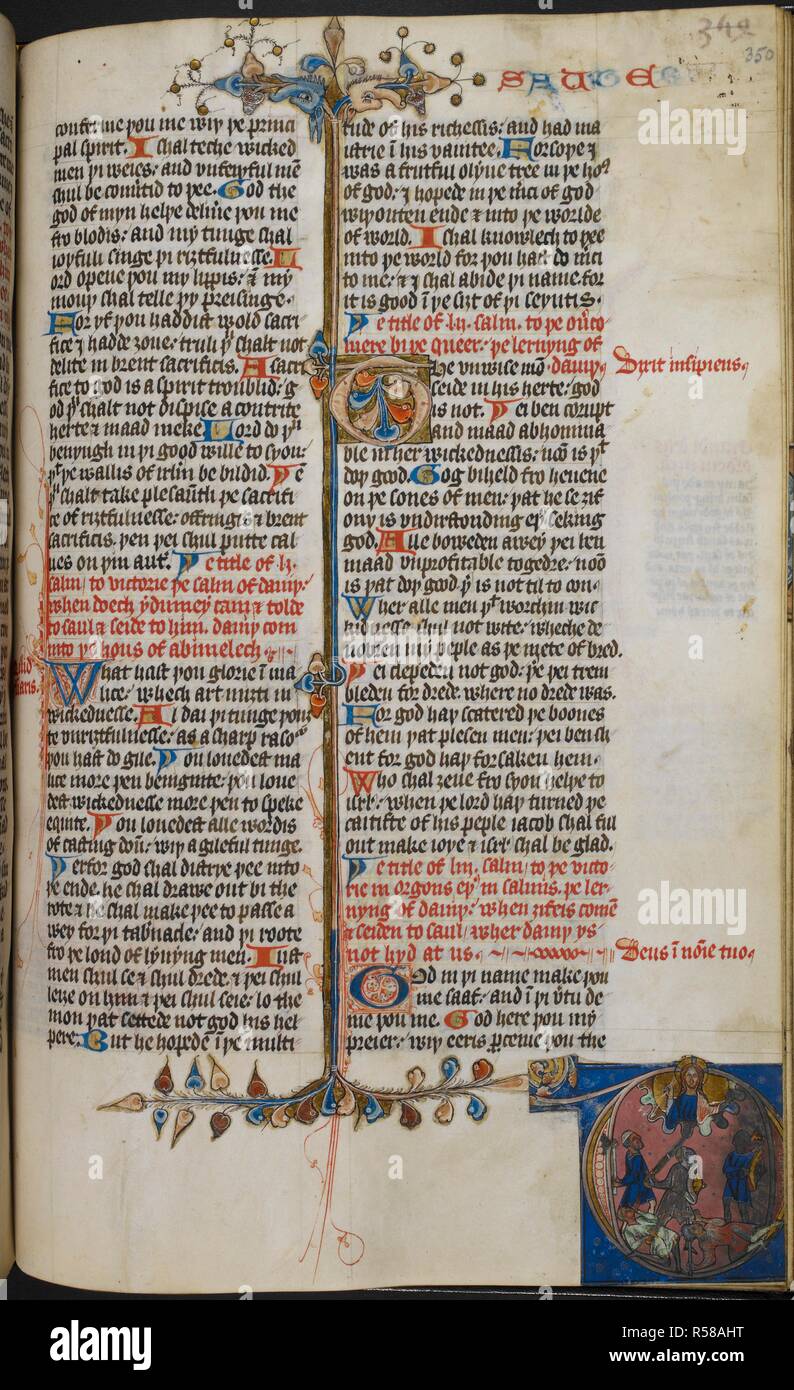 349
350
SAUTER
conferme þou me wiþ þe princi
pal spirit. I schal teche wicked
men þi weies: and vnfeyþful mē
schul be conūtid to þee. God the
god of myn helþe delyue þou me
fro blodis: and my tunge schal
ioyfuli singe þi riztfulnesse. L
ord opene þou my lippis: & my
mouþ schal telle þy preisinge.
For yf þou haddist wold sacri
fice j hadde zoue: truli þu schalt not
delite in brent sacrificis. A sacri
fice to god is a spirit troublid: g
od þu schalt not dispise a contrite
herte & maad meke. Lord do þu
benyngli in þi good wille to syon:
þt þe wallis of irlm be bildid. Þē
þu schalt take plesaūtli þe sacrifi
ce of riztfulnesse: offringis & brent
sacrificis. þen þei schul putte cal
ues on þin aut͛. Þe title of .lj.
salm / to victorie þe salm of dauiþ:
when doech ydumey cam & tolde
to saul & seide to him. dauiþ com
into þe hous of abimelech.
What hast þou glorie ī ma
lice: whech art mizti in
wickednesse. Al dai þi tunge þouz
te vnriztfulnesse: as a scharp raso͛
þou hast do gile. Þou louedest ma
lice more þen benignite: þou loue
dest wickednesse more þen to speke
equite. Þou louedest alle wordis
of casting doū: wiþ a gileful tunge.
Þerfor god schal distrye þee into
þe ende. he schal drawe out bi the
rote & he schal make þee to passe a
wey for þi tabnacle: and þi roote
fro þe lond of lyuyng men. Iust
men schul se & schul drede. & þei schul
leize on him & þei schul seie: lo the
mon þat settede not god his hel
pere. But he hopede ī þe multi
tude of his richessis: and had ma
istrie ī his vanitee. Forsoþe j
was a frutful olyue tree in þe ho͛
of god: j hopede in þe m͛ci of god
wiþouten ende & into þe worlde
of world. I schal knowlech to þee
into þe world for þou hast do m͛ci
to me: & j schal abide þi name. for
it is good ī þe sizt of þi seyntis.
Þe title of .lij. salm. to þe ou͛co
mere bi þe queer: þe lernyng of
dauiþ. Dixit insipiens
The vnwise mō
seide in his herte: god
is not. Þei ben corupt
and maad abhomina
ble in her wickednessis: noō is þt
doþ good. God biheld fro heuene
on þe sones of men: þat he se zif
ony is vndirstonding eþ͛ seking
god. Alle boweden awey þei ben
maad vnprofitable togedre: noō
is þat doþ good þ͛ is not til to oon.
Wher alle men þt worchin wic
kidnesse. schul not wite: wheche de
uouren my peple as þe mete of bred.
Þei clepeden not god: þ͛e þei trem
bleden for drede. where no drede was.
For god haþ scatered þe boones
of hem þat plesen men: þei ben sch
ent for god haþ forsaken hem.
Who schal zeue fro syon helþe to
isrl: when þe lord haþ turned þe
caitifte of his peple iacob schal ful
out make ioye & isrl schal be glad.
Þe title of .liij. salm / to þe victo
rie in orgons eþ͛ in salmis. þe ler
nyng of dauiþ: when zifeis comē
& seiden to saul: wher dauiþ ys
not hyd at us. Deus ī noīe tuo
God in þi name make þou
me saaf: and ī þi v͛tu de
me þou me. God here þou my
preier: wiþ eeris ꝑceiue þou the
alamy
Image ID: R58AHT
www.alamy.com